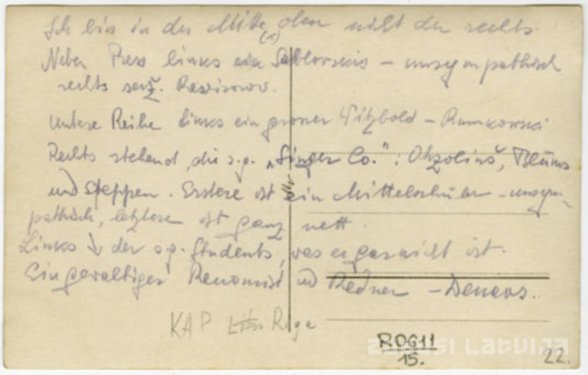 Ich bin in der Mitte (1) oben nicht der rechts.
Neben links ein – unsympathisch
rechts serž. Revisorov.
untere Reihe links ein grosser Witzbold – Rumkowski
Rechts stehend, die s.g. „Singer Co.": Ohzoliņš, Blūms
und Steppen. Erstere ist ein Mittelschüler – unsym-
pathisch, letztere ist ganz nett.
Links ↓ der s.g. Students, was er gar nicht ist.
Ein gewaltiger Renomist und Redner – Deneus.
KAP Riga
ROG11
15.
22.
ZUDUSI LATVIJA